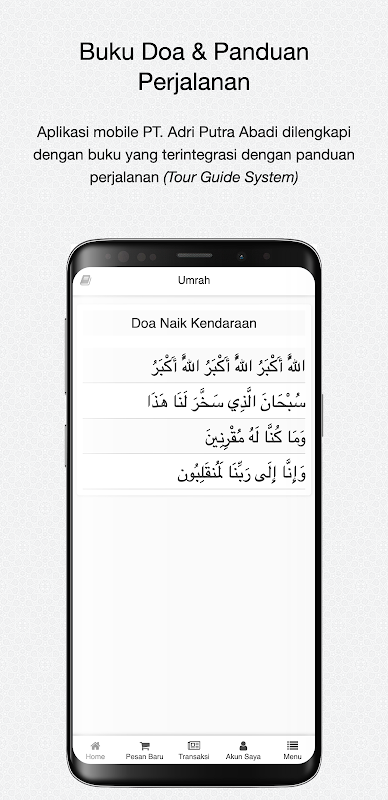 Buku Doa & Panduan
Perjalanan
Aplikasi mobile PT. Adri Putra Abadi dilengkapi
dengan buku yang terintegrasi dengan panduan
perjalanan (Tour Guide System)
Umrah
Doa Naik Kendaraan
اللهُ أَكْبَرُ اللهُ أَكْبَرُ اللهُ أَكْبَرُ
سُبْحَانَ الَّذِي سَخَّرَ لَنَا هَذَا
وَمَا كُنَّا لَهُ مُقْرِنِينَ
وَإِنَّا إِلَى رَبِّنَا لَمُنقَلِبُون
Home Pesan Baru Transaksi Akun Saya Menu